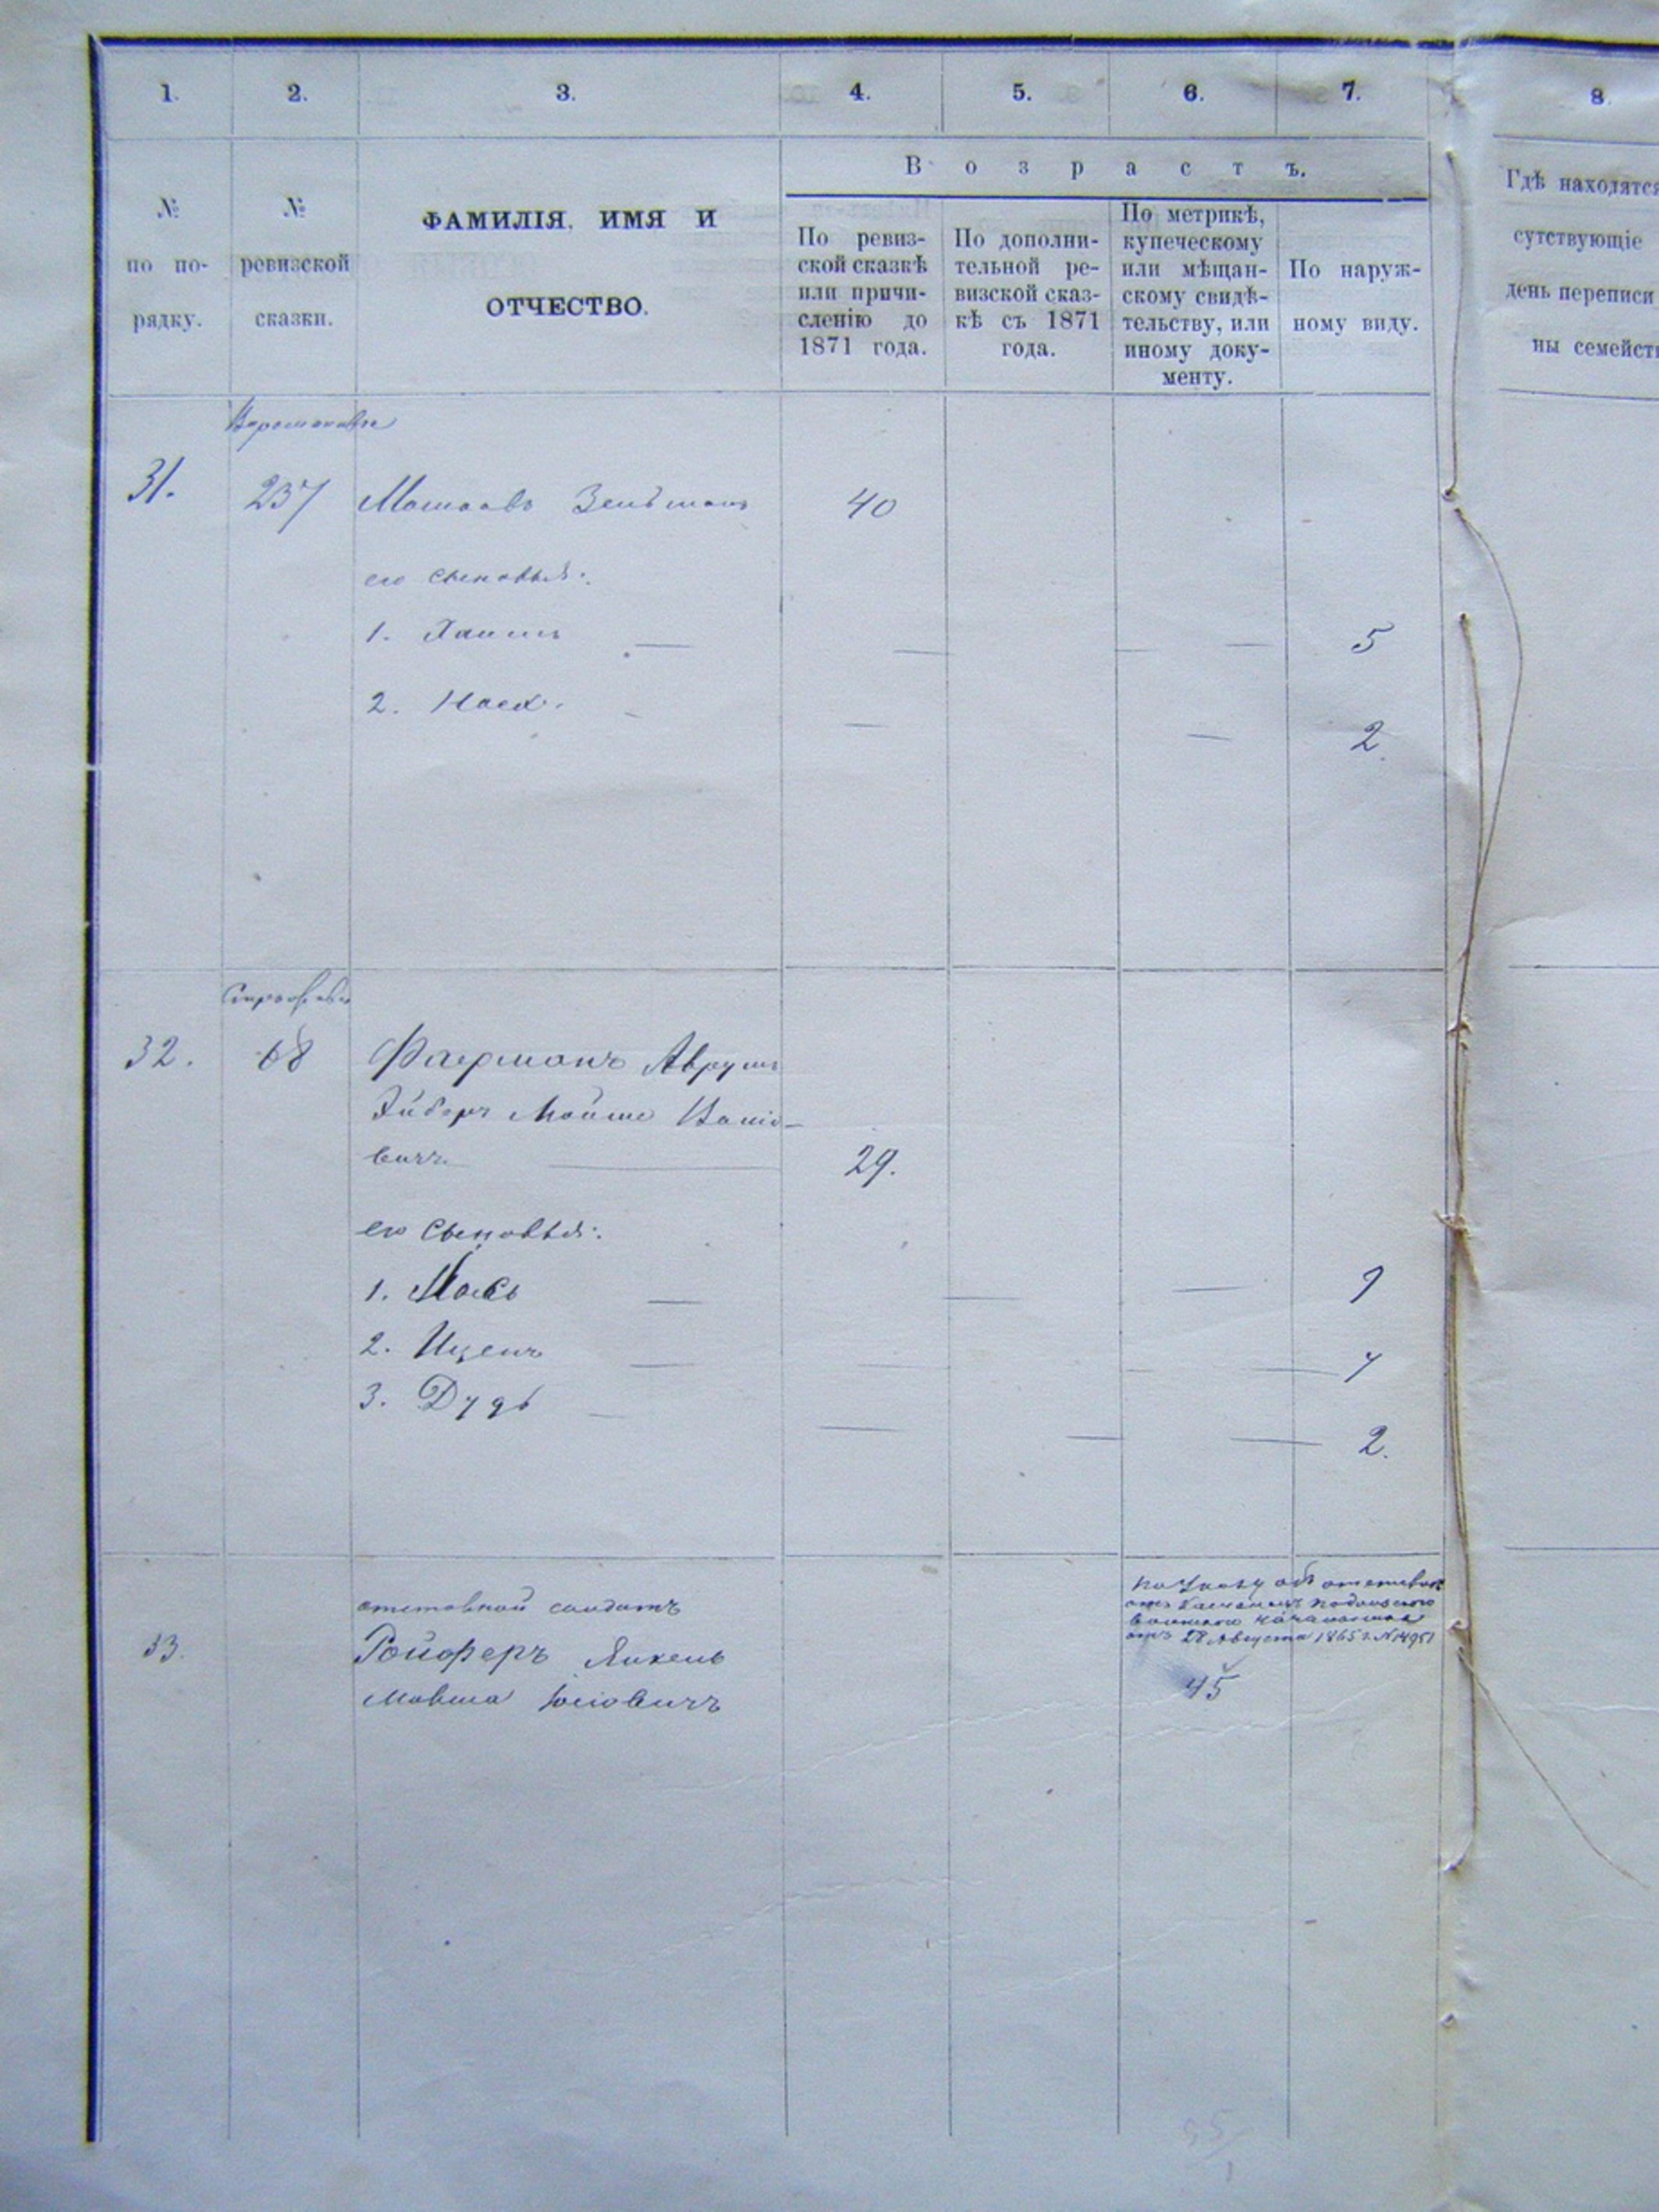 1.
2.
3.
4.
5.
6.
7.
8.
Возрастъ.
№
по по-
рядку.
№
ревизской
сказки.
ФАМИЛІЯ, ИМЯ И
ОТЧЕСТВО.
По ревиз-
ской сказкѣ
или причи-
сленію до
1871 года.
По дополни-
тельной ре-
визской сказ-
кѣ съ 1871
года.
По метрикѣ,
купеческому
или мѣщан-
скому свидѣ-
тельству, или
иному доку-
менту.
По наруж-
ному виду.
Гдѣ находятся
сутствующіе
день переписи
ны семейств
31.
237
Зельманъ
40
его сыновья:
1.
5
2.
2
32.
68
Фаерманъ Аврумъ
Мойше
вичъ
29.
его сыновья:
1.
9
2. Ицекъ
3. Дудь
2.
33.
отставной солдатъ
Ройферъ Янкель
Мовша Іосіовичъ
по указу объ отставкѣ
Подольского
начальника
отъ 28 Августа 1865 г. №14951
45